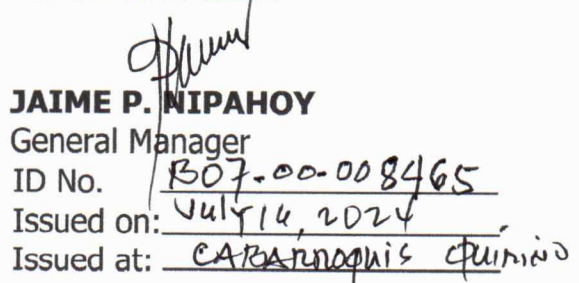 JAIME P. NIPAHOY
General Manager
ID No. B07-00-008465
Issued on: July 16, 2024
Issued at: CABARROQUIS QUIRINO